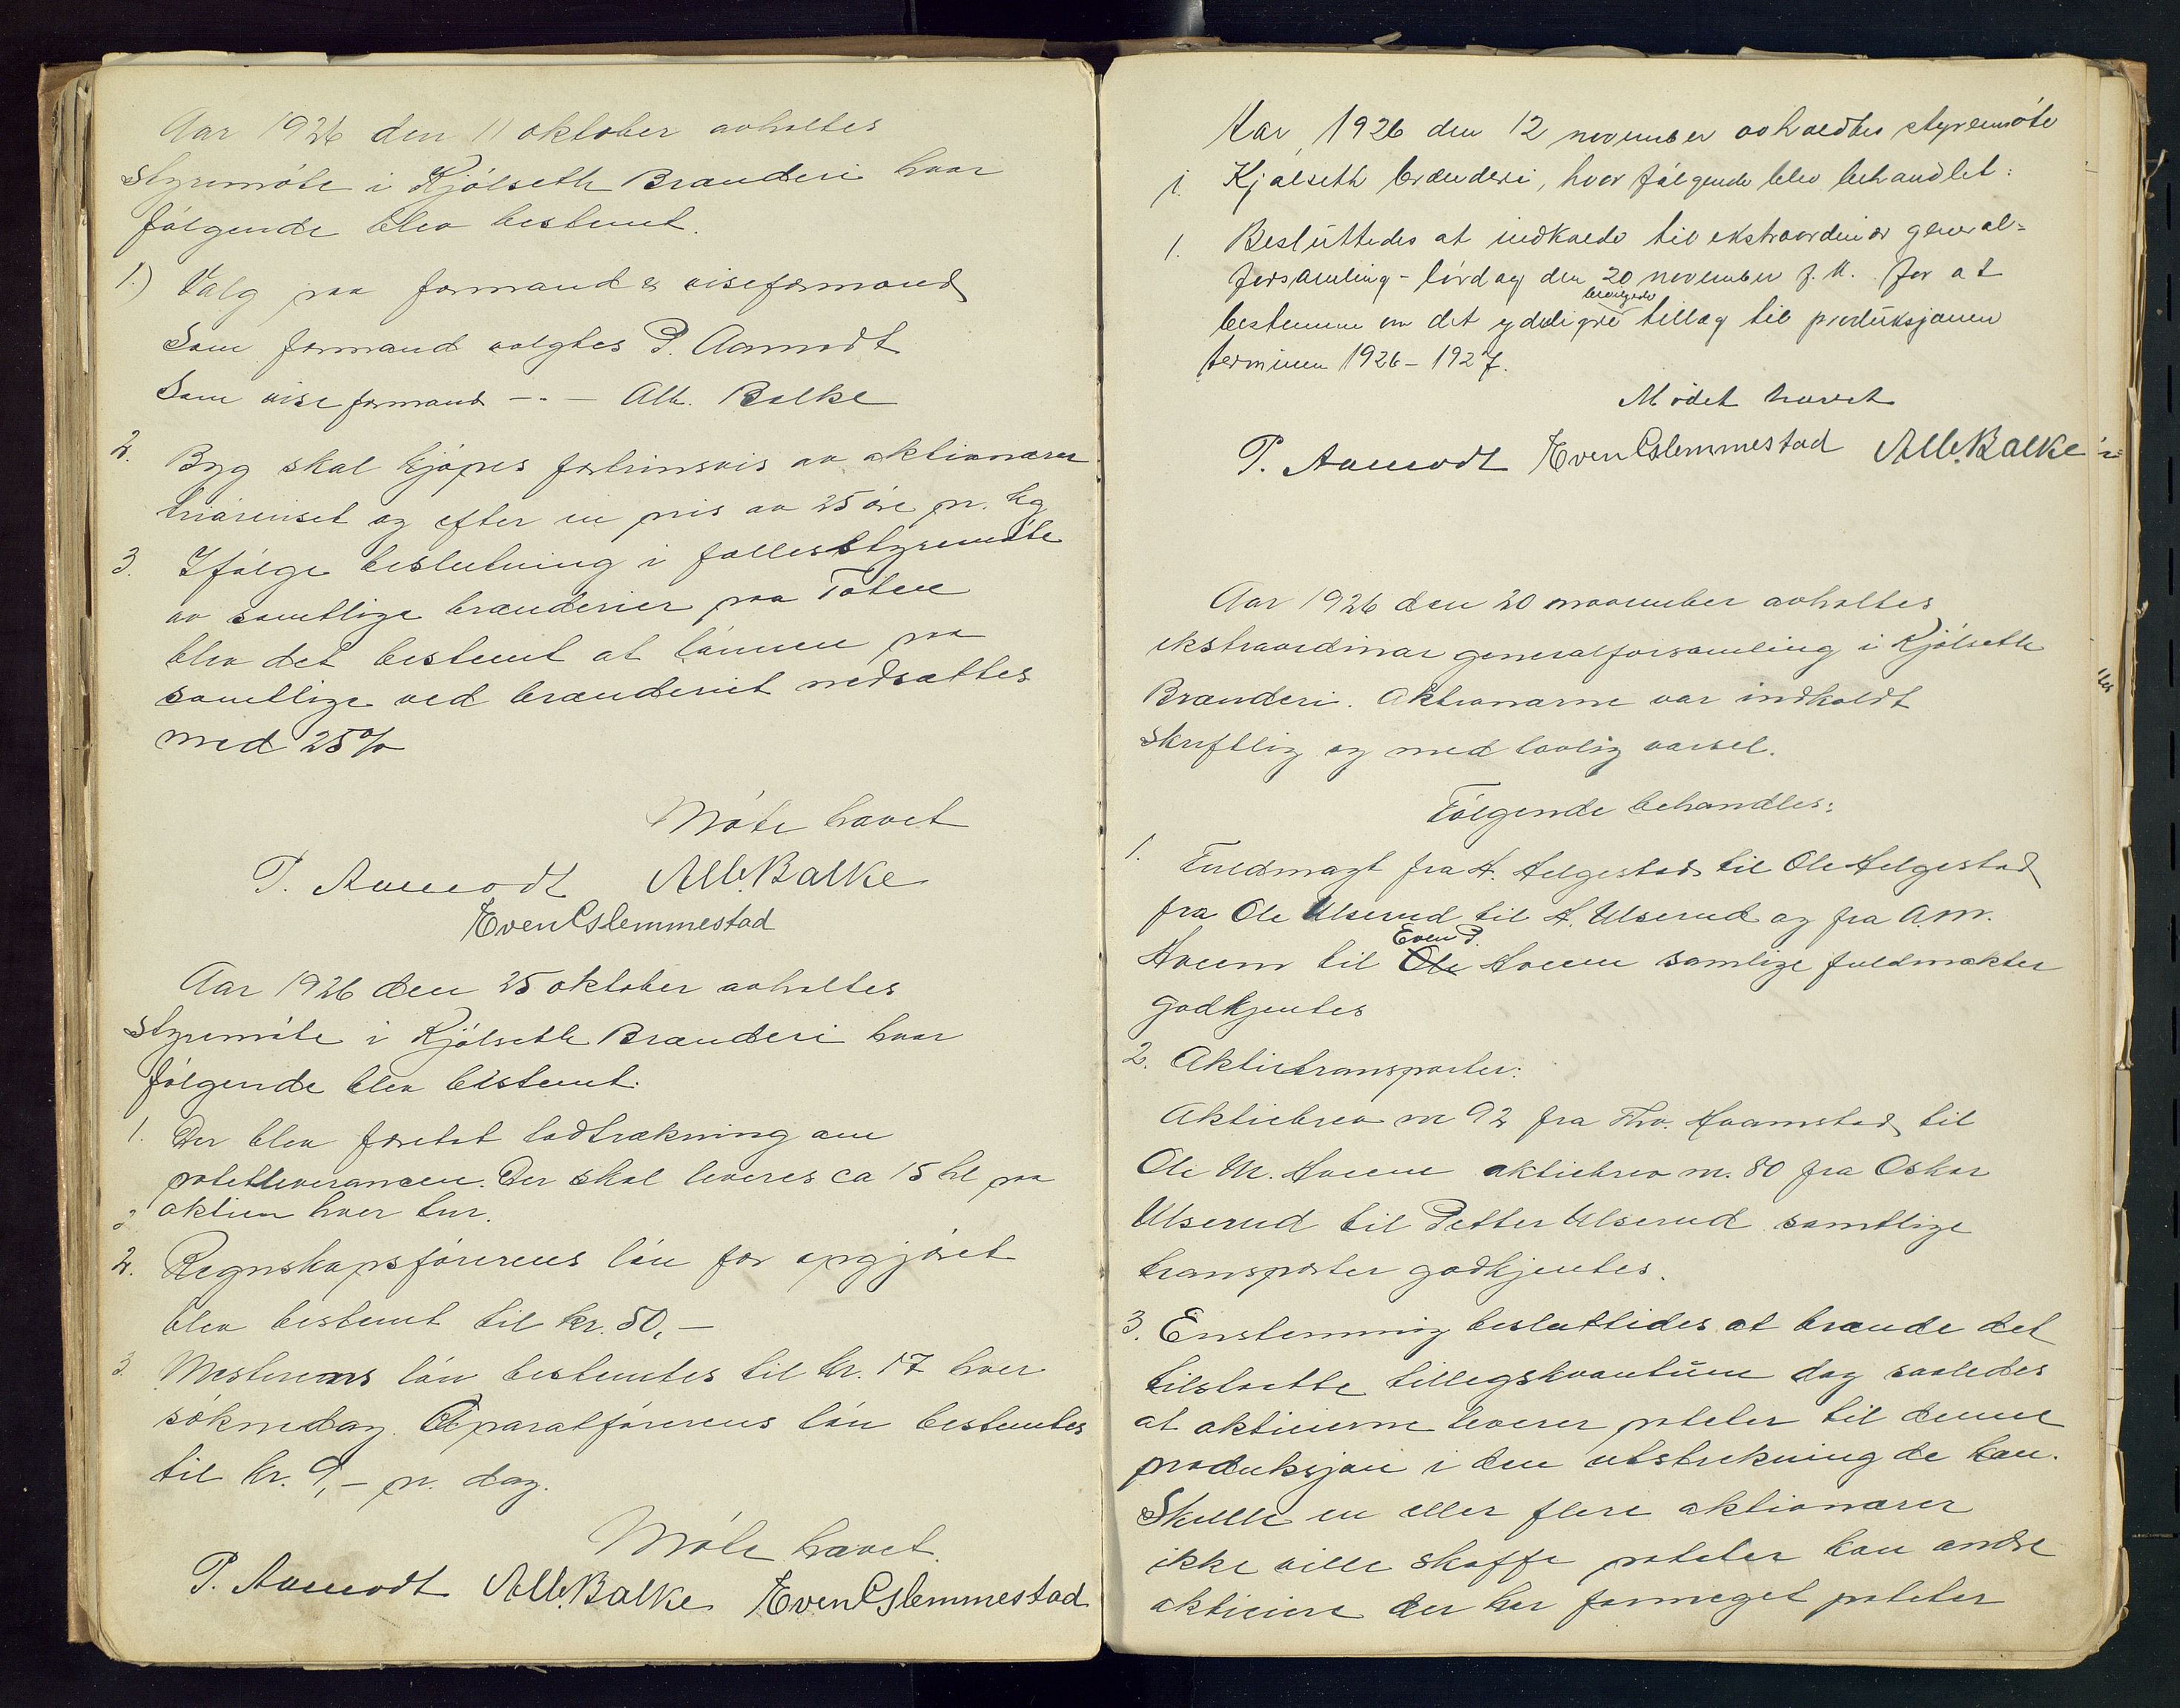 Aar 1926 den 11 oktober avholtes
styremøte i Kjølseth Brænderi hvor
følgende blev bestemt.
1.) Valg paa formand & viseformand
Som formand valgtes P. Aamodt
Som viseformand - " - Alb. Balke
2. Byg skal kjøpes fortrinsvis av aktionærer
triørenset og efter en pris av 25 øre pr. kg
3. Ifølge beslutning i fællesstyremøte
av samtlige brænderier paa Toten
blev det bestemt at lønnen paa
samtlige ved brænderiet nedsættes
med 25%
Møte hævet
P. Aamodt Alb. Balke
Even Glemmestad
Aar 1926 den 25 oktober avholtes
styremøte i Kjølseth Brænderi hvor
følgende blev bestemt.
1. Der blev foretat lodtrækning om
potetleverancen. Der skal leveres ca 15 hl paa
aktien hver tur.
2. Regnskapsførerens løn for opgjøret
blev bestemt til kr. 50,-
3. Mesterens løn bestemtes til kr. 17 hver
søknedag. Aparatførerens løn bestemtes
til kr. 9,- pr. dag.
Møte hævet.
P. Aamodt Alb. Balke Even Glemmestad
Aar 1926 den 12 november avholdtes styremøte
i Kjølseth brænderi, hvor følgende blev behandlet:
1. Besluttedes at indkalde til ekstraordinær general=
forsamling - lørdag den 20 november f. k. for at
bestemme om det yderligere bevilgede tillæg til produksjonen
terminen 1926 - 1927.
Mødet hævet
P. Aamodt Even Glemmestad Alb. Balke
Aar 1926 den 20 november avholtes
ekstraordinær generalforsamling i Kjølseth
Brænderi. Aktionærne var indkaldt
skriftlig og med lovlig varsel.
Følgende behandles:
1. Fuldmagt fra H. Helgestad til Ole Helgestad
fra Ole Ulserud til H. Ulserud og fra A. M.
Hveem til Ole Even P. Hveem samlige fuldmakter
godkjentes
2. Aktietransporter:
Aktiebrev nr 92 fra Thv. Hvamstad til
Ole M. Hveem aktiebrev nr. 80 fra Oskar
Ulserud til Petter Ulserud samtlige
transporter godkjentes.
3. Enstemmig besluttedes at brænde det
tilstaatte tillegskvantum dog saaledes
at aktieierne leverer poteter til denne
produksjon i den utstrekning de kan.
Skulle en eller flere aktionærer
ikke ville skaffe poteter kan andre
aktieiere der har formeget poteter